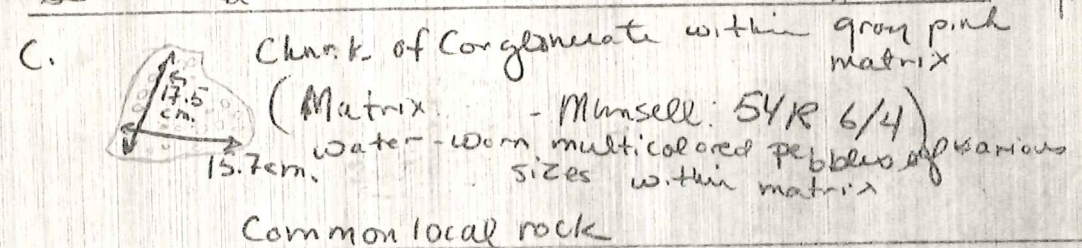 C.
Chunk of Conglomerate within gray pink
matrix
17.5
cm.
(Matrix - Munsell: 5YR 6/4)
water-worn multicolored pebbles of various
15.7cm.
sizes within matrix
Common local rock